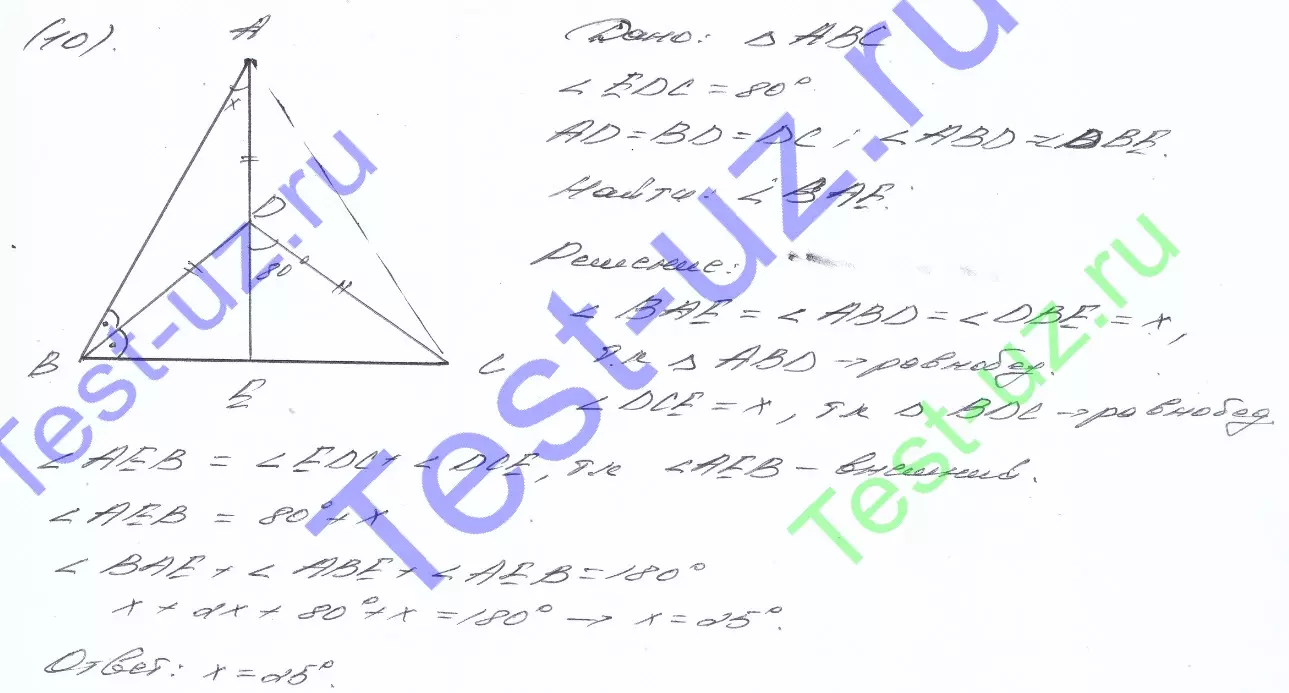 (10).
A
x
D
80°
B
C
E
Дано: △ABC
∠EDC = 80°
AD = BD = DC; ∠ABD = ∠DBE.
Найти: ∠BAE.
Решение:
∠BAE = ∠ABD = ∠DBE = x,
т.к △ABD → равнобед.
∠DCE = x, т.к △BDC → равнобед
∠AEB = ∠EDC + ∠DCE, т.к ∠AEB – внешний.
∠AEB = 80° + x
∠BAE + ∠ABE + ∠AEB = 180°
x + 2x + 80° + x = 180° → x = 25°.
Ответ: x = 25°.
Test-uz.ru
Test-uz.ru
Test-uz.ru